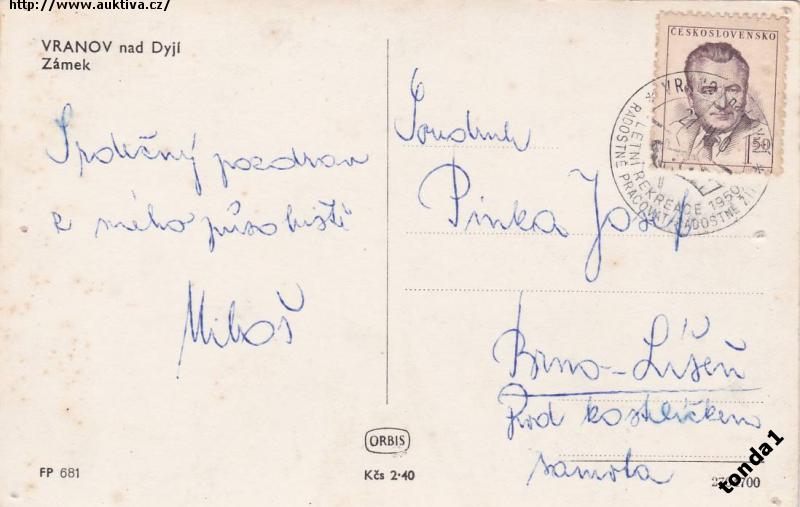 http://www.auktiva.cz/
VRANOV nad Dyjí
Zámek
Srdečný pozdrav
z mého působiště
Miloš
Soudruh
Pinka Josef
Brno-Líšeň
Pod kostelíčkem
samota
ČESKOSLOVENSKO
1.50
LETNÍ REKREACE 1950
RADOSTNĚ PRACOVAT RADOSTNĚ ŽÍT
ORBIS
FP 681
Kčs 2·40
tonda1